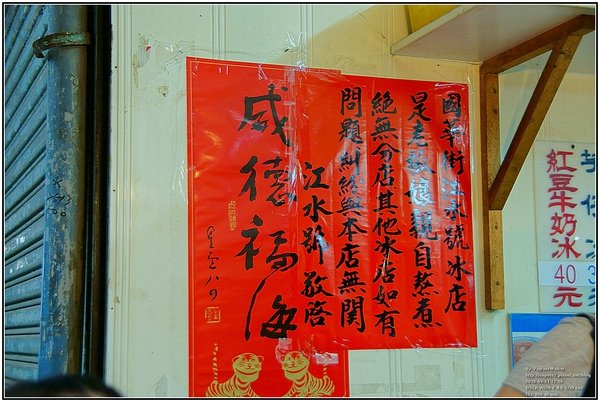 國華街江水號冰店
是老板懷親自熬煮
絕無分店其他冰店如有
問題糾紛與本店無關
江水號敬啓
威德福海
紅豆牛奶冰
40
元
芋仔冰
3